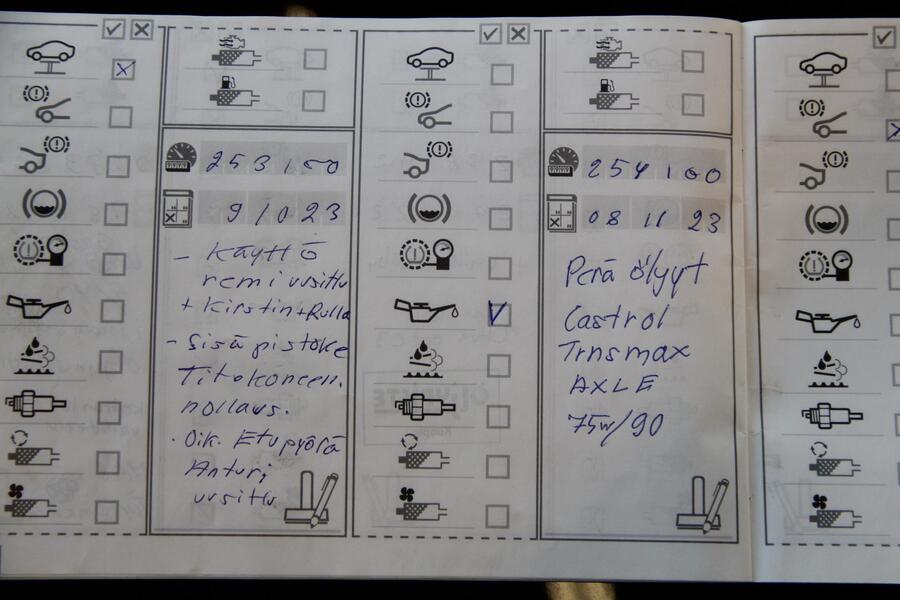 253100
91023
- Käyttö
remi uusittu
+ Kirstin + Rulla
- Sisäpistoke
Titokoneen.
nollaus.
· Oik. Etupyörä
Anturi
uusittu
254100
08 11 23
Perä öljyt
Castrol
Trnsmax
AXLE
75w/90